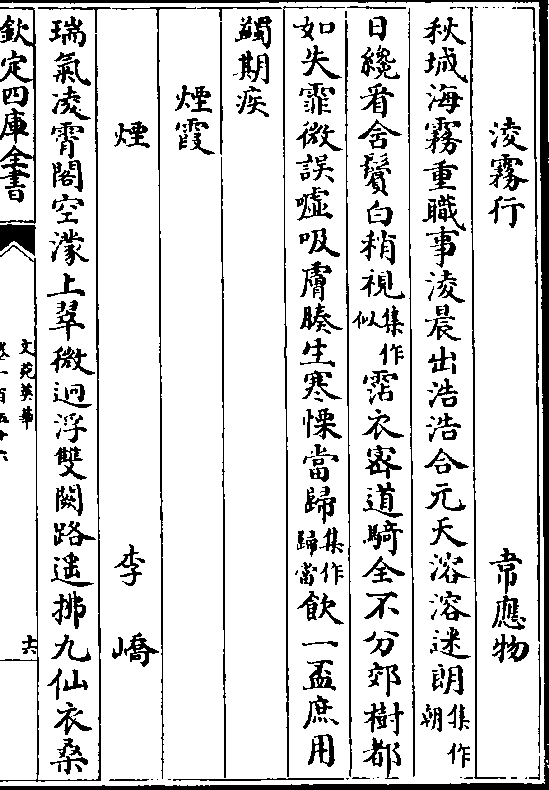 淩霧行 韋應物
秋城海霧重職事淩晨出浩浩合元天溶溶迷朗集作朝
日纔看含鬢白稍視集作似霑衣密道騎全不分郊樹都
如失霏微誤噓吸膚腠生寒慄當歸集作歸當飲一盃庶用
蠲期疾
煙霞
煙 李嶠
瑞氣凌霄閣空濛上翠微迥浮雙闕路遥拂九仙衣桑
欽定四庫全書 文苑英華 卷一百五十六 六